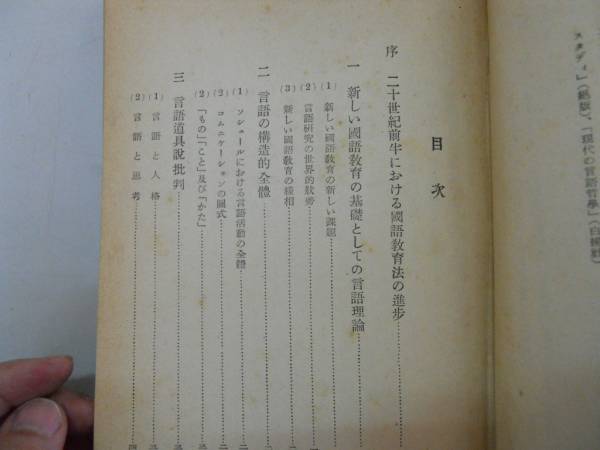 スタディ」(絶版)、「現代の言語哲學」(白揚社)
目次
序 二十世紀前半における國語敎育法の進步
一 新しい國語敎育の基礎としての言語理論
(1) 新しい國語敎育の新しい課題
(2) 言語硏究の世界的狀勢
(3) 新しい國語敎育の樣相
二 言語の構造的全體
(1) ソシュールにおける言語活動の全體
(2) コムニケーションの圖式
(2) 「もの」「こと」及び「かた」
三 言語道具說批判
(1) 言語と人格
(2) 言語と思考